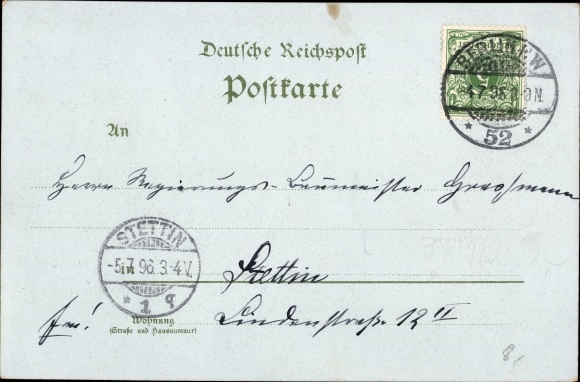 Deutsche Reichspost
Postkarte
BERLIN N.W.
4.7.96.8-9N.
* 52 *
5
An
Herrn Regierungs-Baumeister Grossmann
STETTIN
-5.7.96.3-4V.
* 1 q
in
Stettin
frei! Lindenstraße 12 II
Wohnung
(Straße und Hausnummer)
8,-